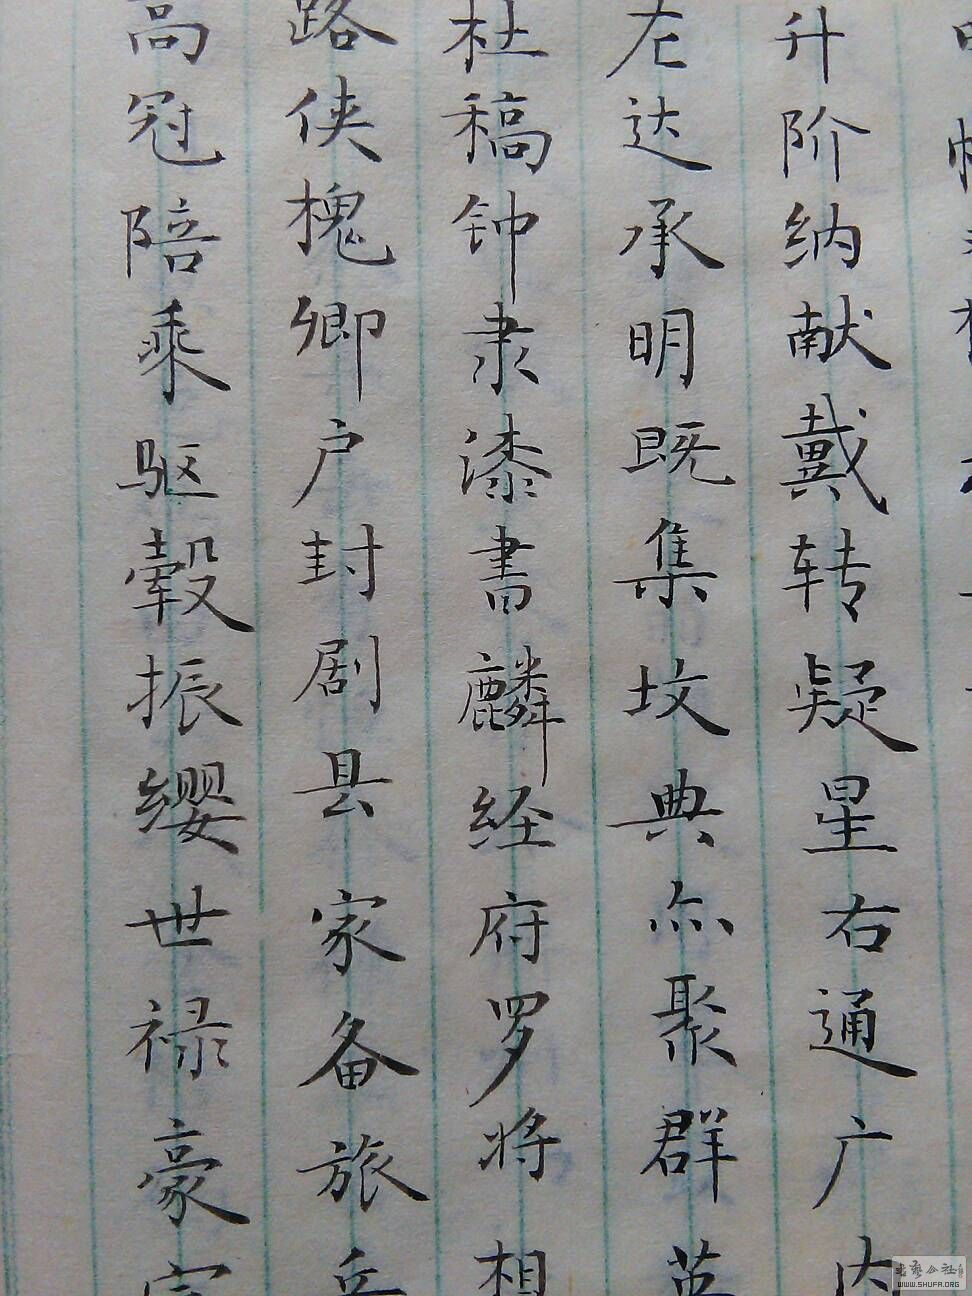 升阶纳献戴转疑星右通广内
左达承明既集坟典亦聚群英
杜稿钟隶漆書麟经府罗将相
路侠槐卿户封剧县家备旅兵
高冠陪乘驱毂振缨世禄豪
WWW.SHUFA.ORG